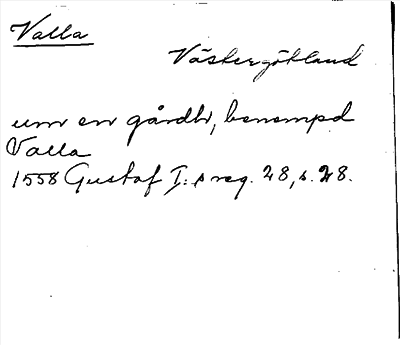 Valla
Västergötland
um en gårdh, benempd
Valla
1558 Gustaf I:s reg. 28, s. 28.